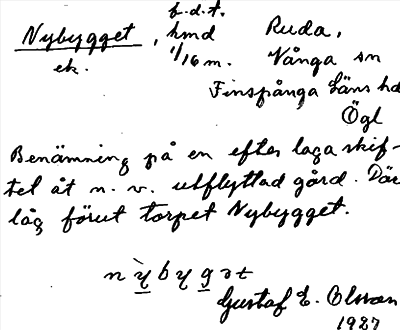 f.d.t.
Nybygget, hmd Ruda,
ek. 1/16 m. Vånga sn
Finspånga Läns hd
Ögl
Benämning på en efter laga skif-
tet åt n. v. utflyttad gård. Där
låg förut torpet Nybygget.
Gustaf E. Olsson
1927